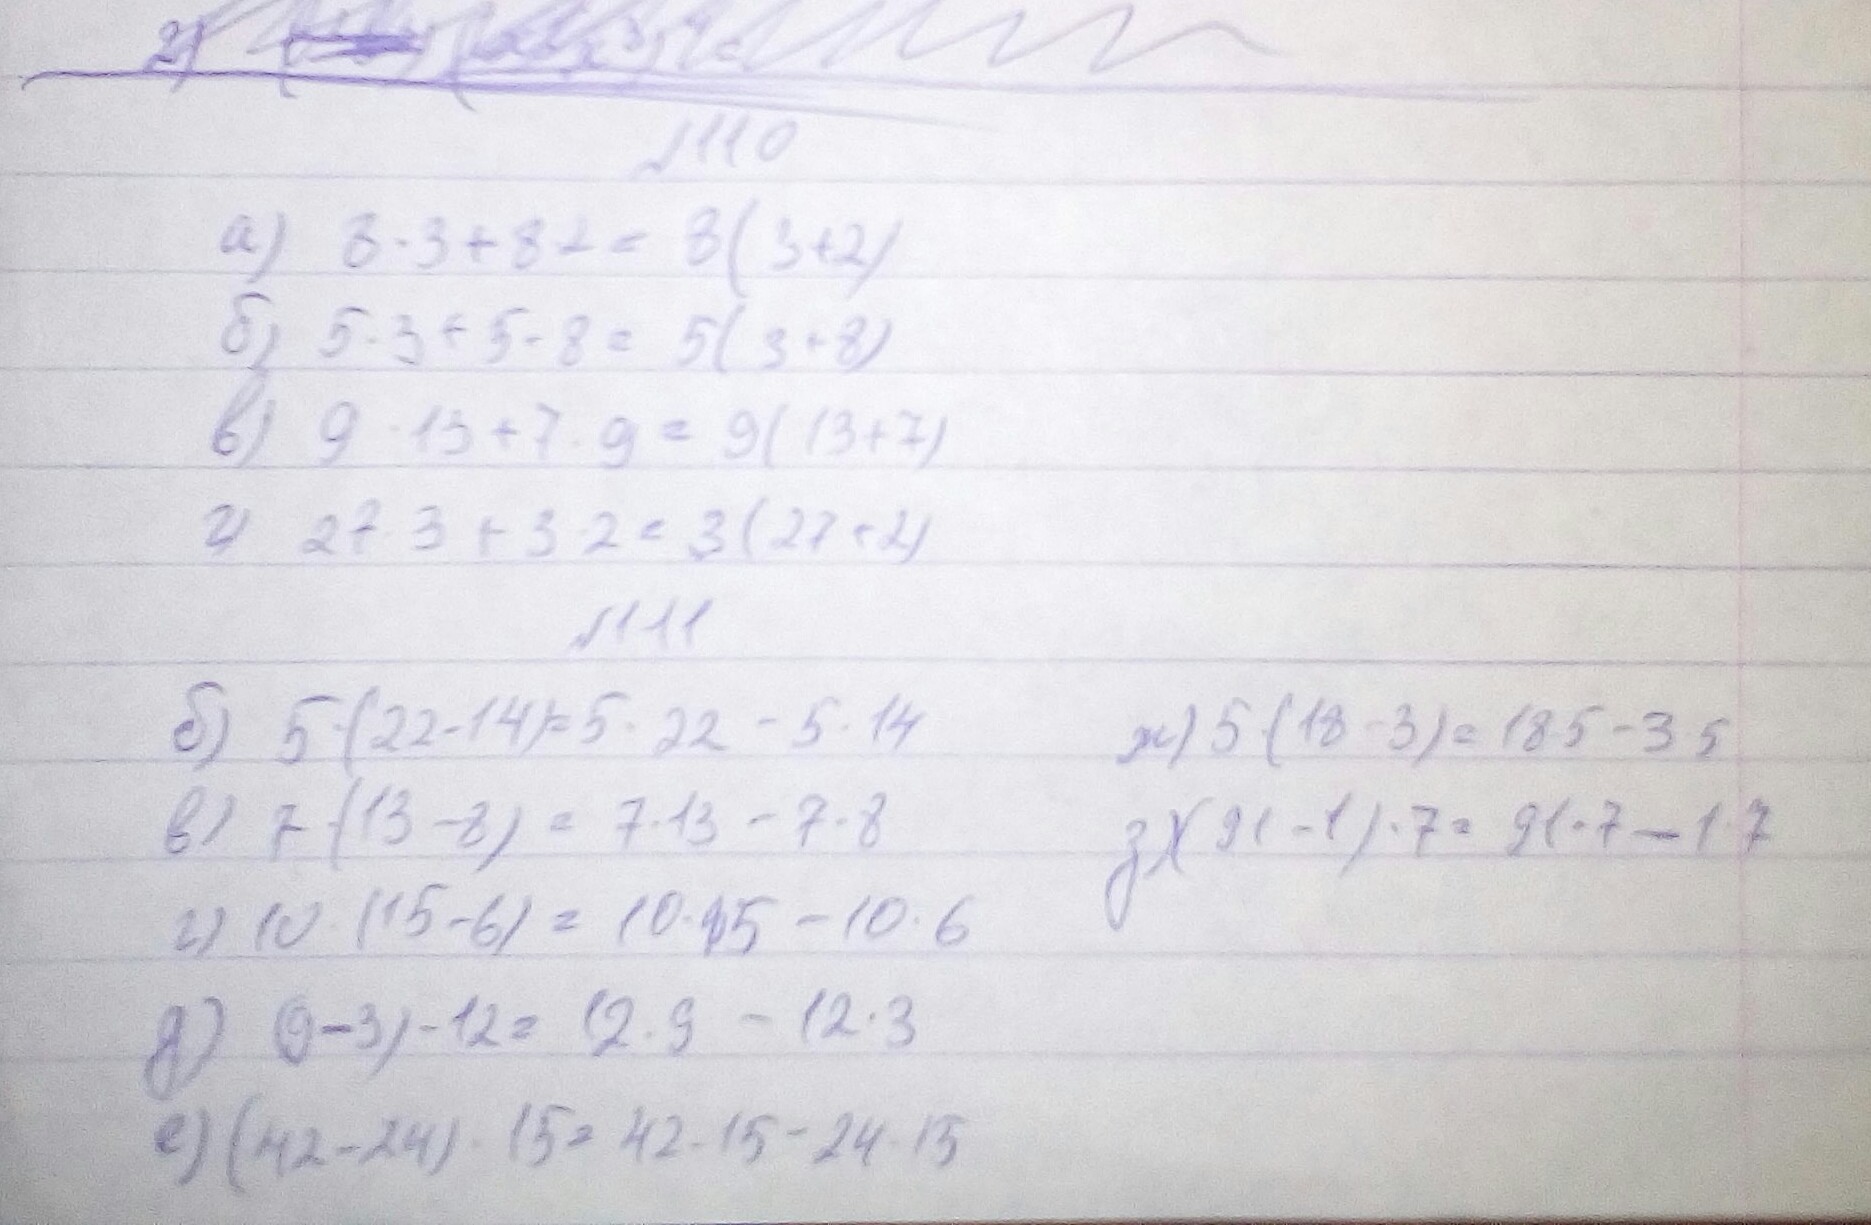 №110
а) 8·3+8 2= 8(3+2)
б) 5·3+5·8= 5(3+8)
в) 9·13+7·9= 9(13+7)
г) 27·3+3·2= 3(27+2)
№111
б) 5·(22-14)=5·22-5·14
в) 7·(13-8)= 7·13-7·8
г) 10·(15-6)= 10·15-10·6
д) (9-3)·12= 12·9-12·3
е) (42-24)·15= 42·15-24·15
ж) 5·(18-3)= 18·5-3·5
з) (91-1)·7= 91·7-1·7